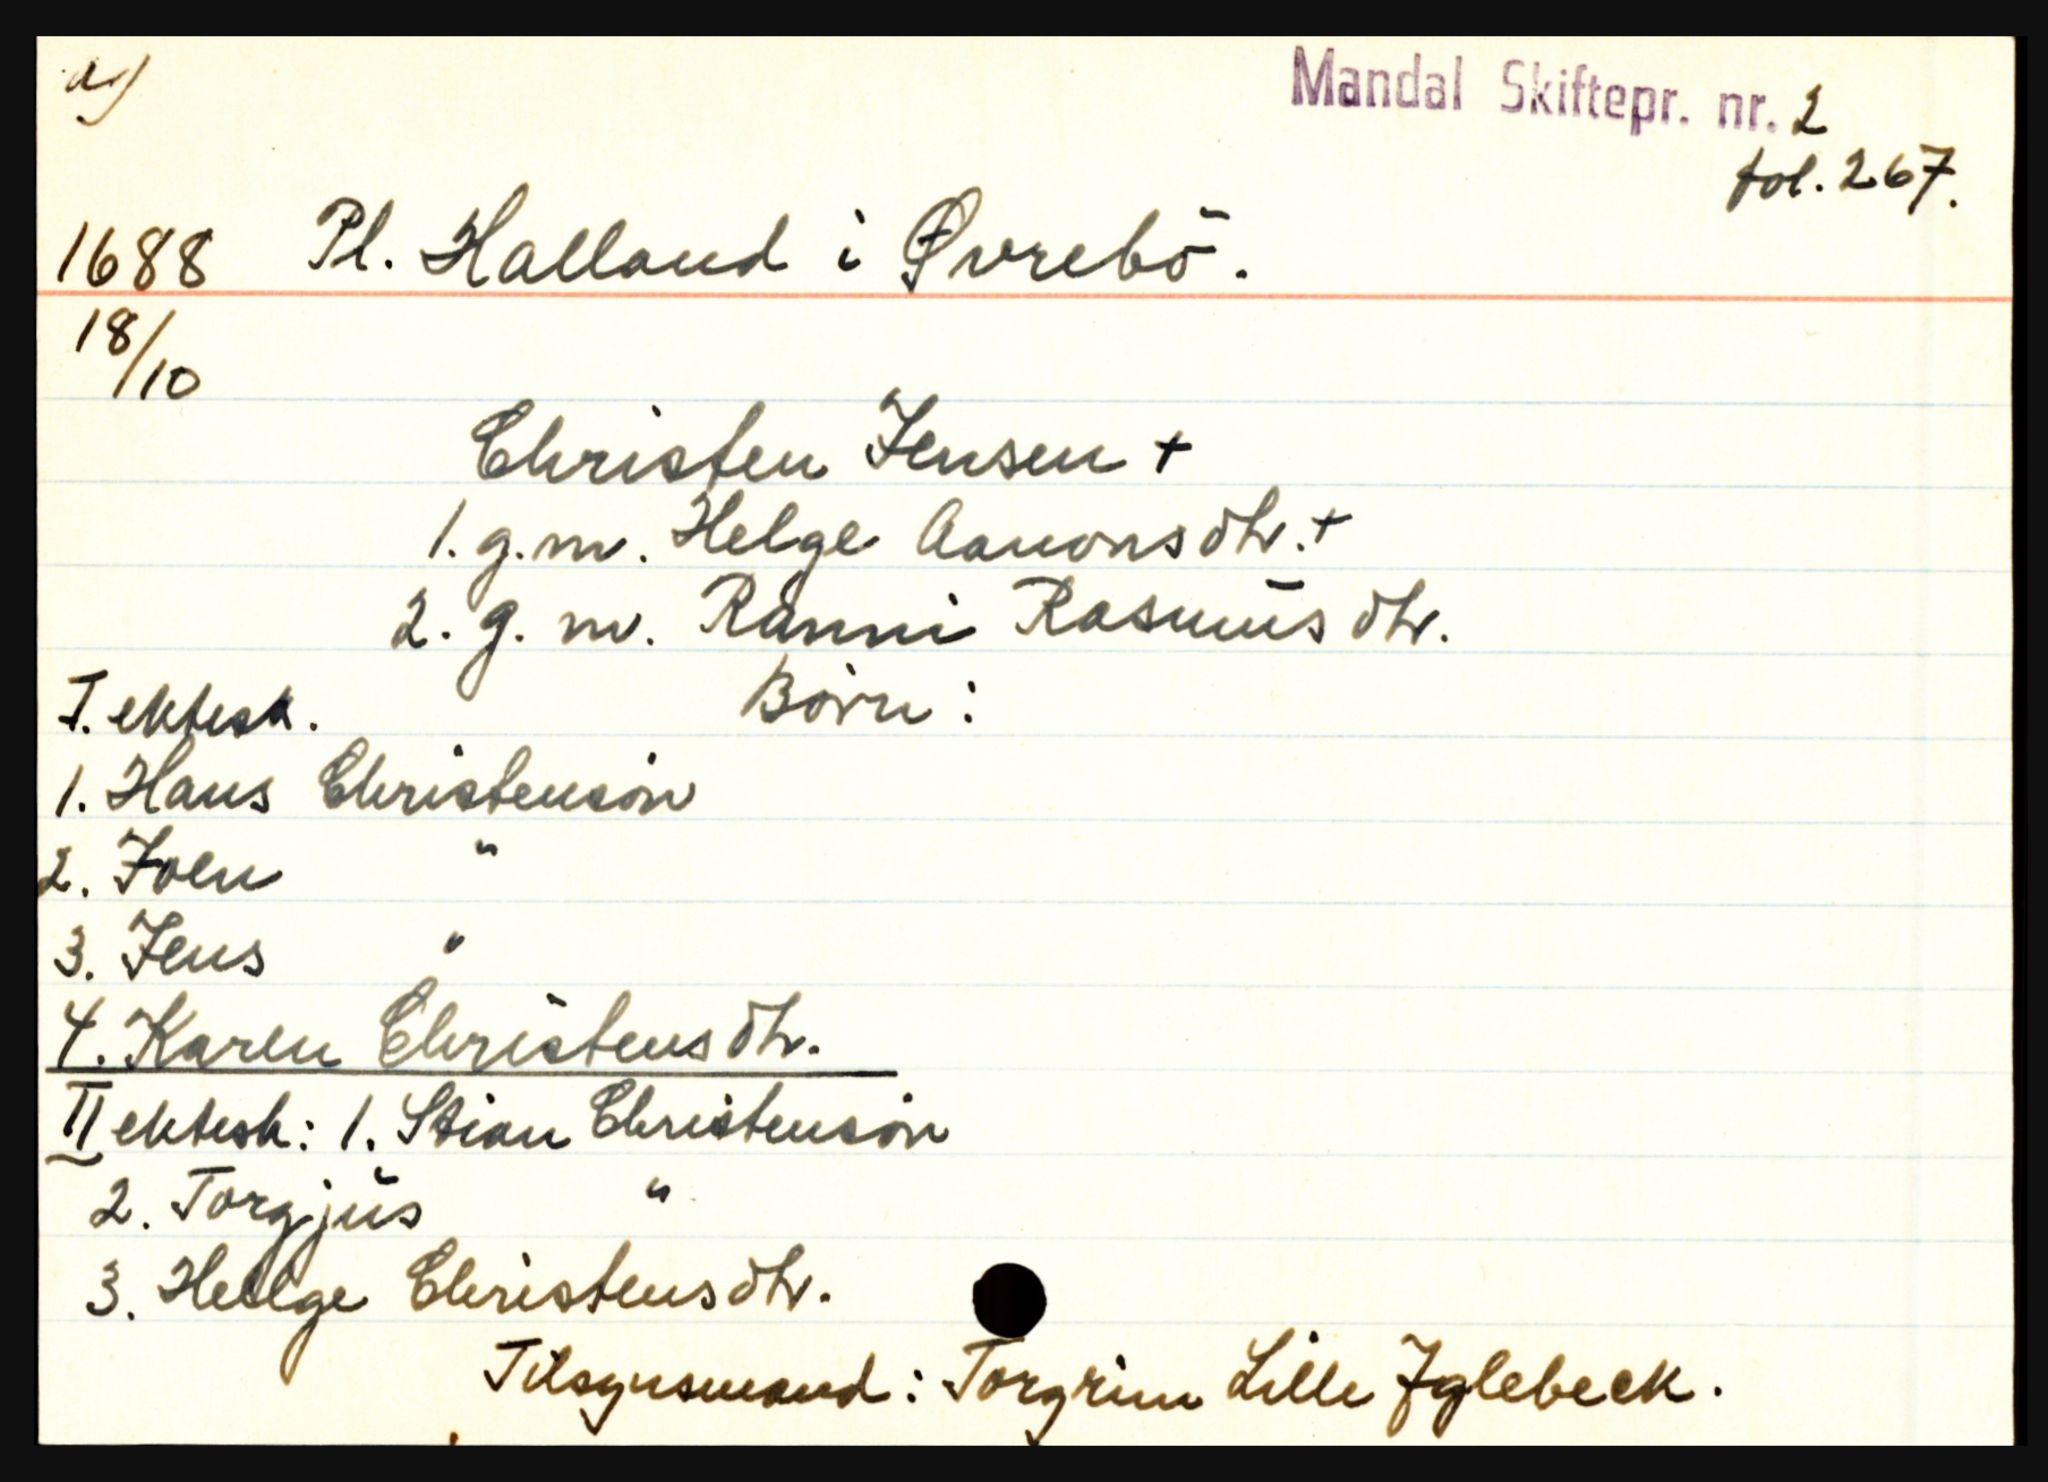 a)
Mandal Skiftepr. nr. 2
fol. 267.
1688 Pl. Halland i Øvrebö.
18/10
Christen Jensen +
1. g.m. Helge Aanonsdtr. +
2. g.m. Ranni Rasmusdtr.
I. ektesk. Börn:
1. Hans Christensön
2. Joen "
3. Jens "
4. Karen Christensdtr.
II ektesk: 1. Stian Christensön
2. Torgjus "
3. Helge Christensdtr.
Tilsynsmand: Torgrim Lille Iglebeck.